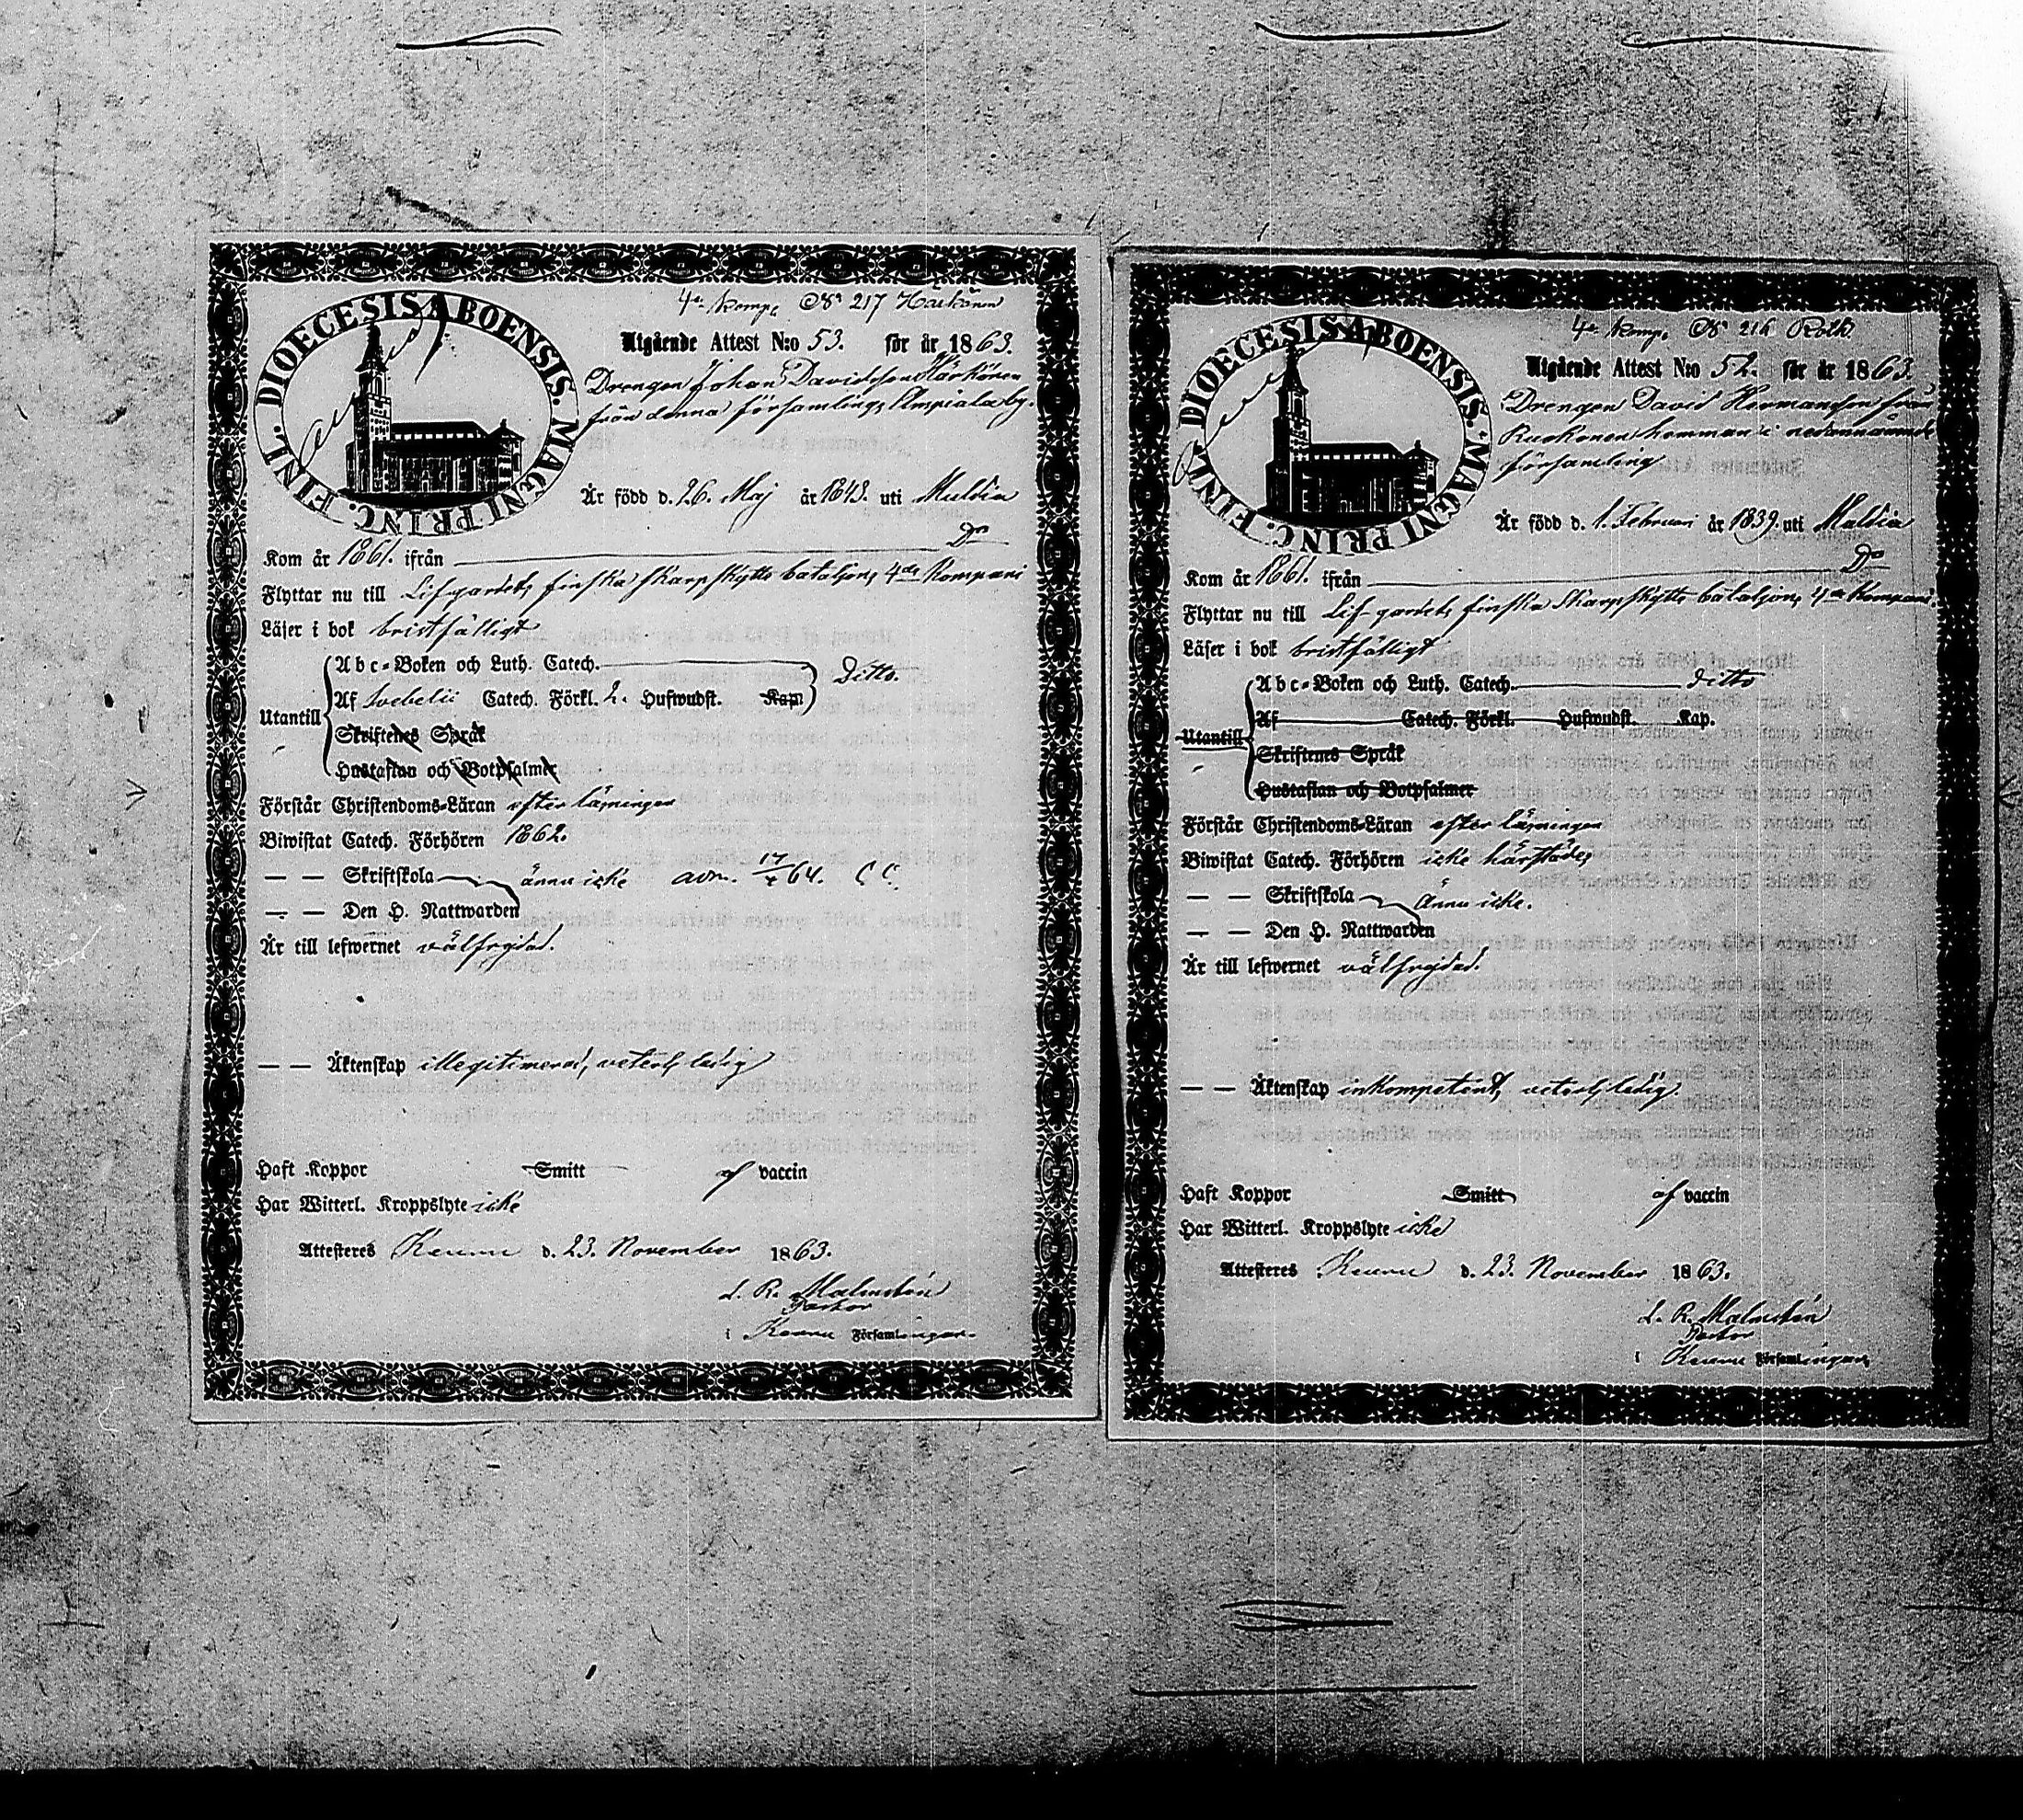 4de Komp. No 217 Härkönen
DIOECESIS ABOENSIS. MAGNI PRINC. FINL.
Utgående Attest N:o 53. för år 1863.
Drengen Johan Davidsson Härkönen
från denna församlings Ampiala by.
Är född d. 26. Maj år 1843. uti Multia
Kom år 1861. ifrån Do
Flyttar nu till Lifgardets finska skarpskytte bataljons 4de Kompani
Läser i bok bristfälligt
Utantill
Abc-Boken och Luth. Catech. Ditto.
Af Svebelii Catech. Förkl. 2. Hufwudst. Kap.
Skriftenes Språk
Hustaflan och Botpsalmer
Förstår Christendoms-Läran efter läsningen
Biwistat Catech. Förhören 1862.
— — Skriftskola ännu icke adm. 17/4 64.
— — Den H. Nattwarden
Är till lefwernet välfrejdad.
— — Äktenskap illegitimerad, veterl. ledig
Haft Koppor Smitt af vaccin
Har Witterl. Kroppslyte icke
Attesteres Keuru d. 23. November 1863.
L. R. Malmstén
Pastor
i Keuru Församlingar.
4de Komp. No 216 Roth.
DIOECESIS ABOENSIS. MAGNI PRINC. FINL.
Utgående Attest N:o 52. för år 1863.
Drengen David Hermansson från
Ruokonen hemman i nedannämnde
församling
Är född d. 1. Februari år 1839. uti Multia
Kom år 1861. ifrån Do
Flyttar nu till Lif-gardets finska Skarpskytte bataljons 4de Kompani.
Läser i bok bristfälligt
Utantill
Abc-Boken och Luth. Catech. ditto
Af Catech. Förkl. Hufwudst. Kap.
Skriftenes Språk
Hustaflan och Botpsalmer
Förstår Christendoms-Läran efter läsningen
Biwistat Catech. Förhören icke härstädes
— — Skriftskola Ännu icke.
— — Den H. Nattwarden
Är till lefwernet välfrejdad.
— — Äktenskap inkompetent, veterl. ledig.
Haft Koppor Smitt af vaccin
Har Witterl. Kroppslyte icke
Attesteres Keuru d. 23. November 1863.
L. R. Malmstén
Pastor
i Keuru Församlingar